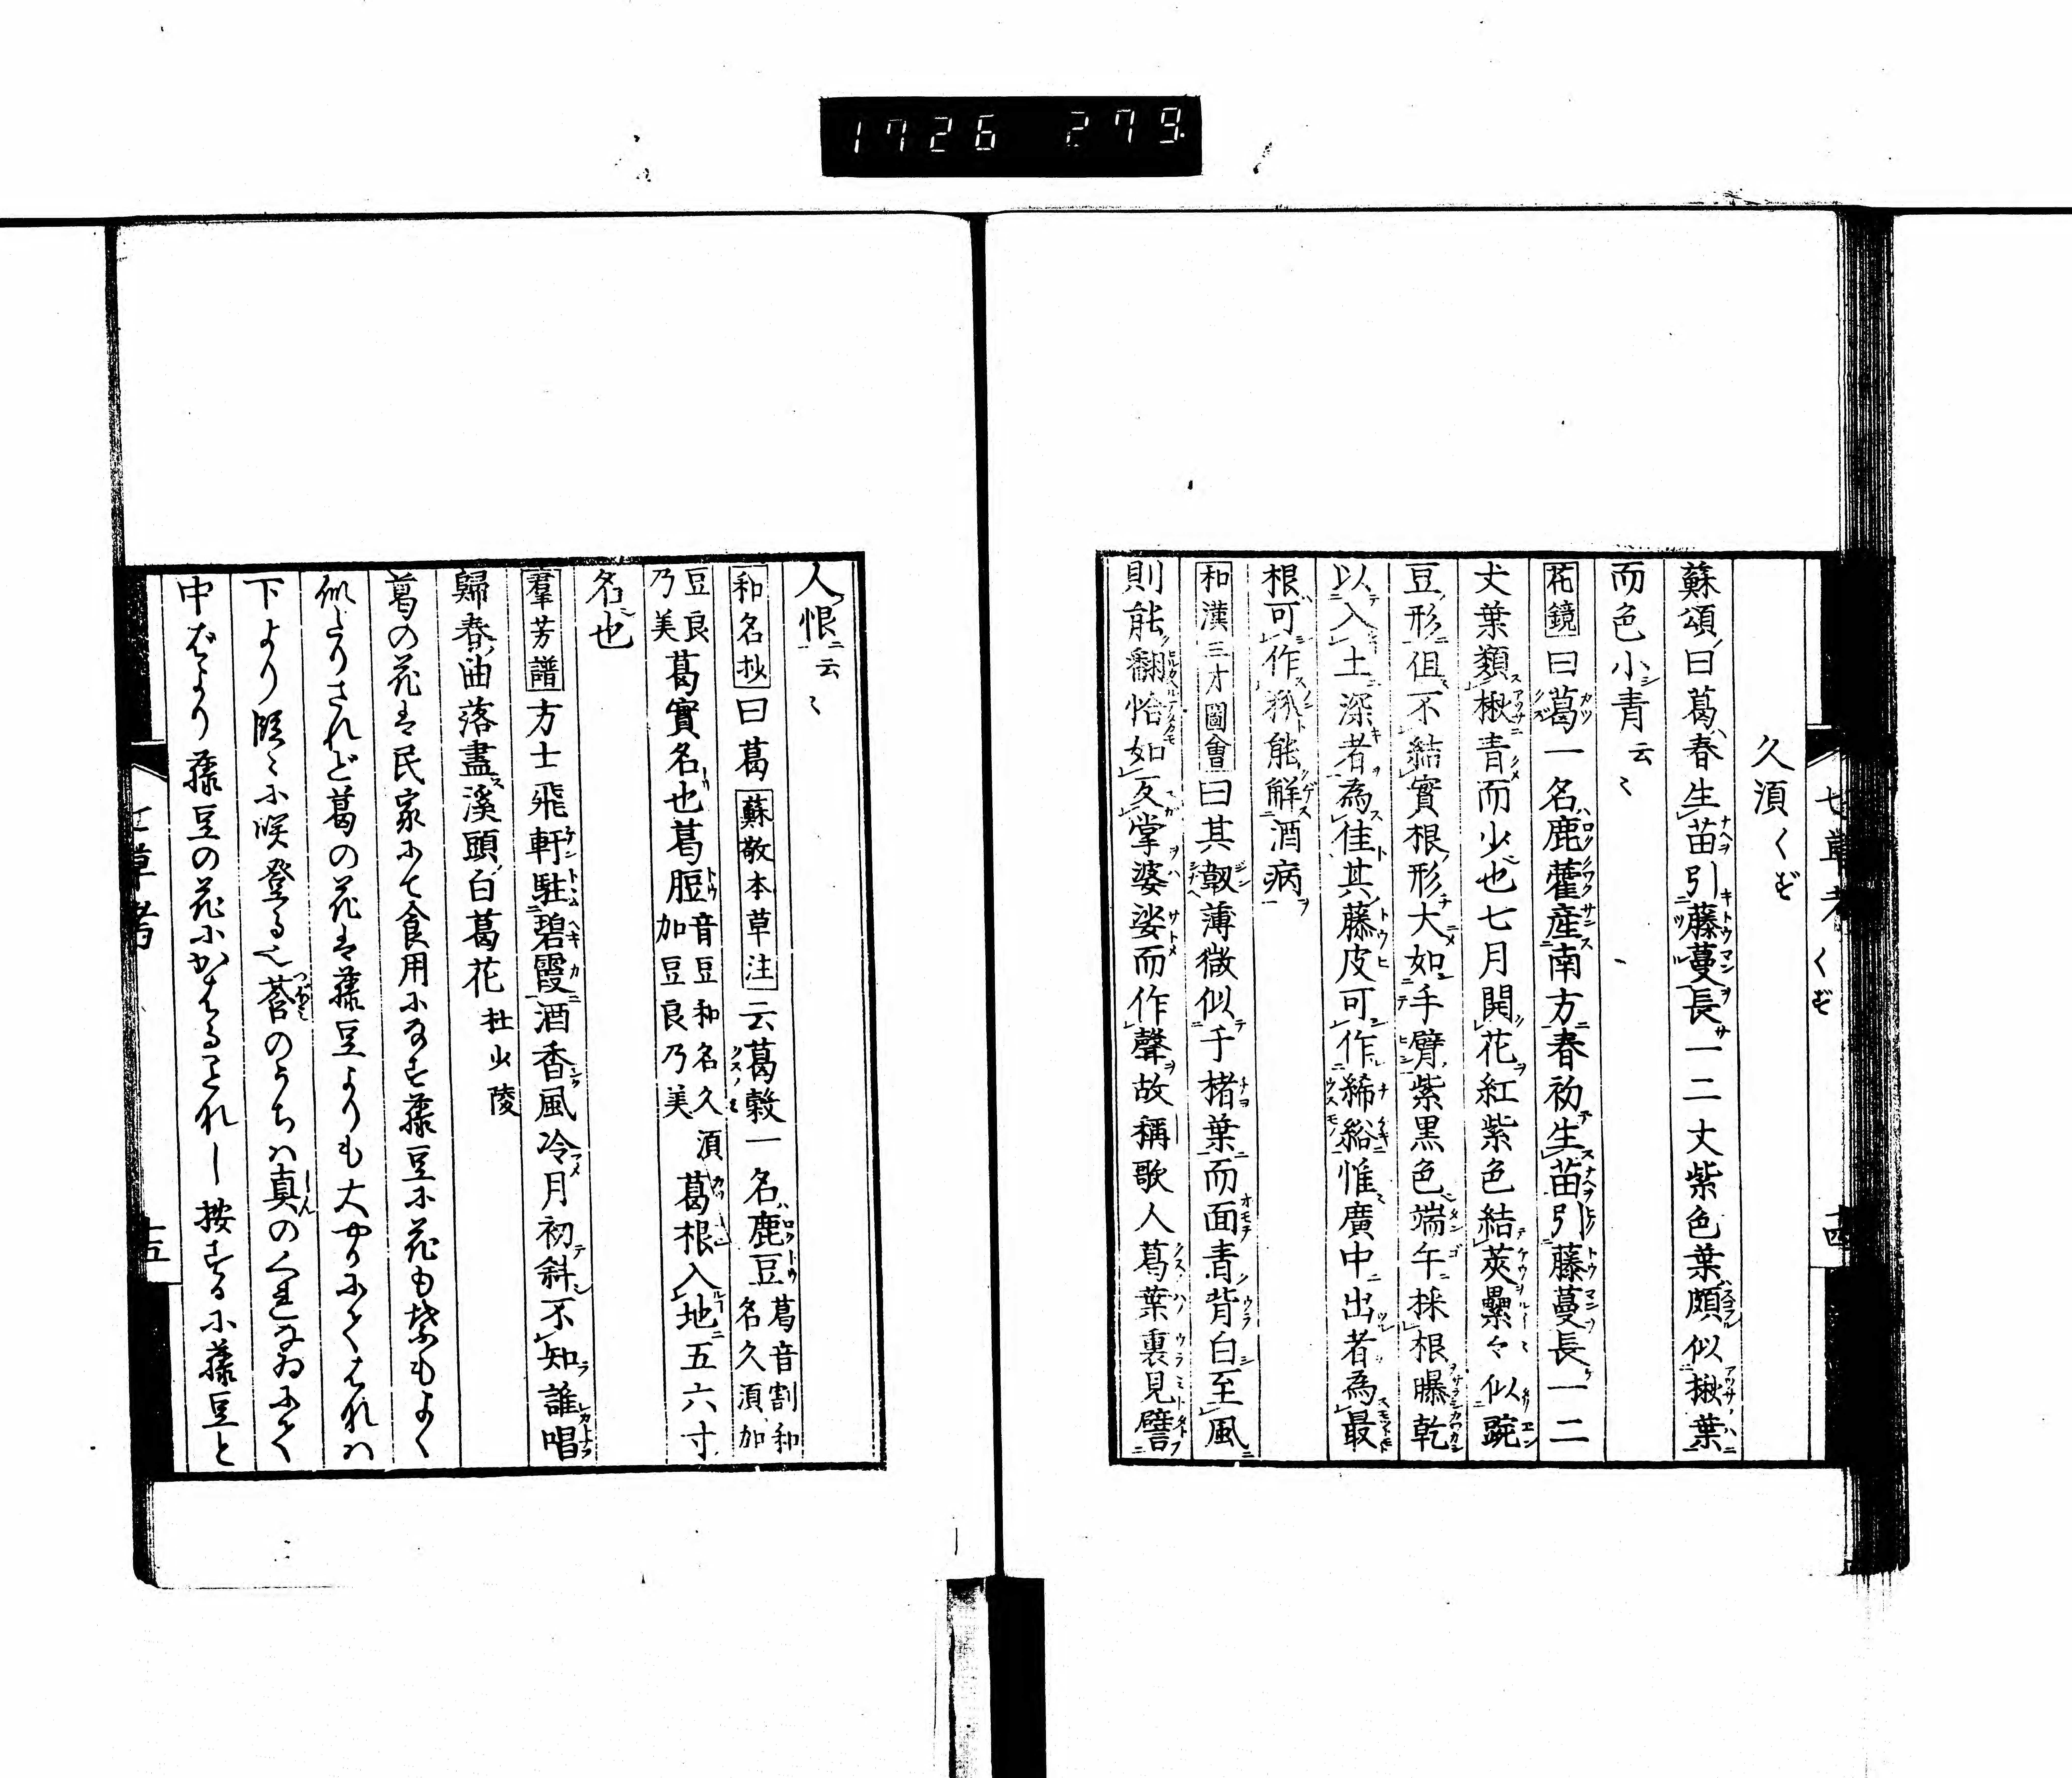 1726 279
七草考 くず 十四
久須くず
蘇頌曰葛春生苗引藤蔓長一二丈紫色葉頗似楸葉
而色小青云〻
花鏡曰葛一名鹿藿産南方春初生苗引藤蔓長一二
丈葉類楸青而少也七月開花紅紫色結莢纍々似豌
豆形但不結實根形大如手臂紫黒色端午採根曝乾
以入土深者為佳其藤皮可作絺綌惟廣中出者為最
根可作粉能解酒病
和漢三才圖會曰其靱薄微似于楮葉而面青背白至風
則能翻恰如反掌婆娑而作聲故稱歌人葛葉裏見譬
人恨云〻
和名抄曰葛蘇敬本草注云葛穀一名鹿豆葛音割和名久須加
豆良乃美葛實名也葛脰音豆和名久須加豆良乃美葛根入地五六寸
名也
羣芳譜方士飛軒駐碧霞酒香風冷月初斜不知誰唱
歸春曲落盡溪頭白葛花杜少陵
葛の花は民家にて食用になす藤豆に花も葉もよく
似たりされど葛の花は藤豆よりも大やうにてくはれハ
下より段〻に咲登る也蒼のうちハ真のくれなゐにて
中ばより藤豆の花にかはることなれし按するに藤豆と
七草考 十五